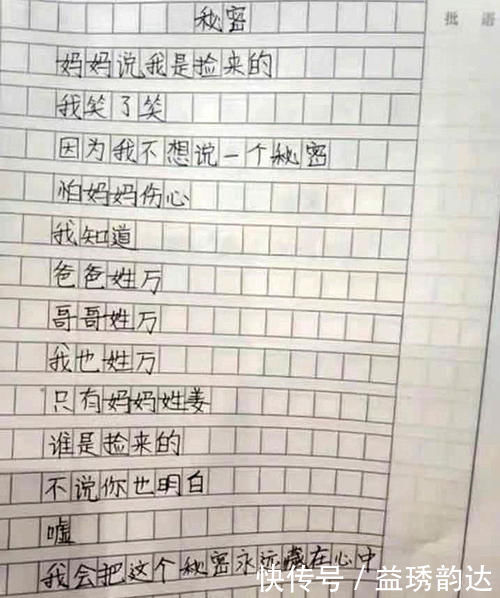 批 语
秘密
妈妈说我是捡来的
我笑了笑
因为我不想说一个秘密
怕妈妈伤心
我知道
爸爸姓万
哥哥姓万
我也姓万
只有妈妈姓姜
谁是捡来的
不说你也明白
嘘
我会把这个秘密永远藏在心中
快传号／益琇韵达